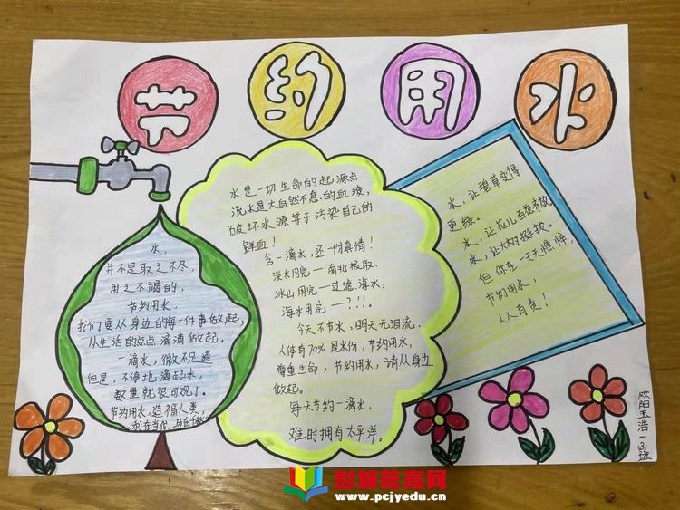 节约用水
水,
并不是取之不尽,
用之不竭的,
节约用水,
我们要从身边的每一件事做起,
从生活的点点滴滴做起。
一滴水,微不足道
但是,不停地滴起水,
数量就很可观了。
节约用水 造福人类,
水是一切生命的起源点
洗水是大自然不息的血液,
破坏水源等于污染自己的
鲜血!
舍一滴水,还一份真情!
淡水用完——南北极取.
冰山用完——过滤海水,
海水用完——?!!.
今天不节水,明天无泪流,
人体有70%是水份,节约用水,
尊重生命.节约用水,请从身边
做起。
每天节约一滴水.
难时拥有太平洋。
水,让碧草变得
更绿。
水,让花儿百花齐放
水,让大树挺拔.
但你在一天天
节约用水,
人人有责!
欧阳玉浩 一.3班
彭城教育网
www.pcjyedu.cn